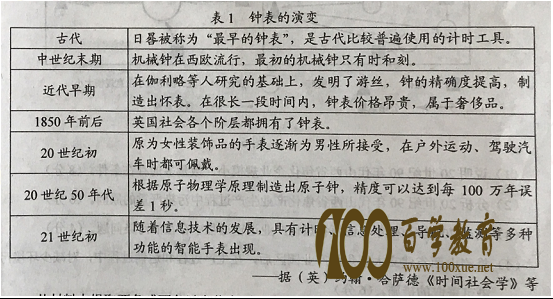 表1 钟表的演变
古代 日晷被称为“最早的钟表”，是古代比较普遍使用的计时工具。
中世纪末期 机械钟在西欧流行，最初的机械钟只有时和刻。
近代早期 在伽利略等人研究的基础上，发明了游丝，钟的精确度提高，制
造出怀表。在很长一段时间内，钟表价格昂贵，属于奢侈品。
1850年前后 英国社会各个阶层都拥有了钟表。
20世纪初 原为女性装饰品的手表逐渐为男性所接受，在户外运动、驾驶汽
车时都可佩戴。
20世纪50年代 根据原子物理学原理制造出原子钟，精度可以达到每100万年误
差1秒。
21世纪初 随着信息技术的发展，具有计时、信息处理、导航、监测等多种
功能的智能手表出现。
100百学教育
www.100xue.net
——据（英）约翰·哈萨德《时间社会学》等